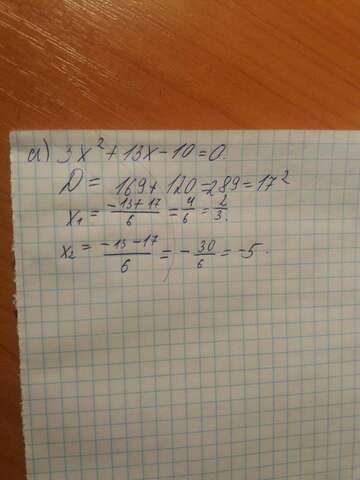 а) 3x² + 13x - 10 = 0.
D = 169 + 120 = 289 = 17²
x₁ = (-13+17)/6 = 4/6 = 2/3.
x₂ = (-13-17)/6 = -30/6 = -5.